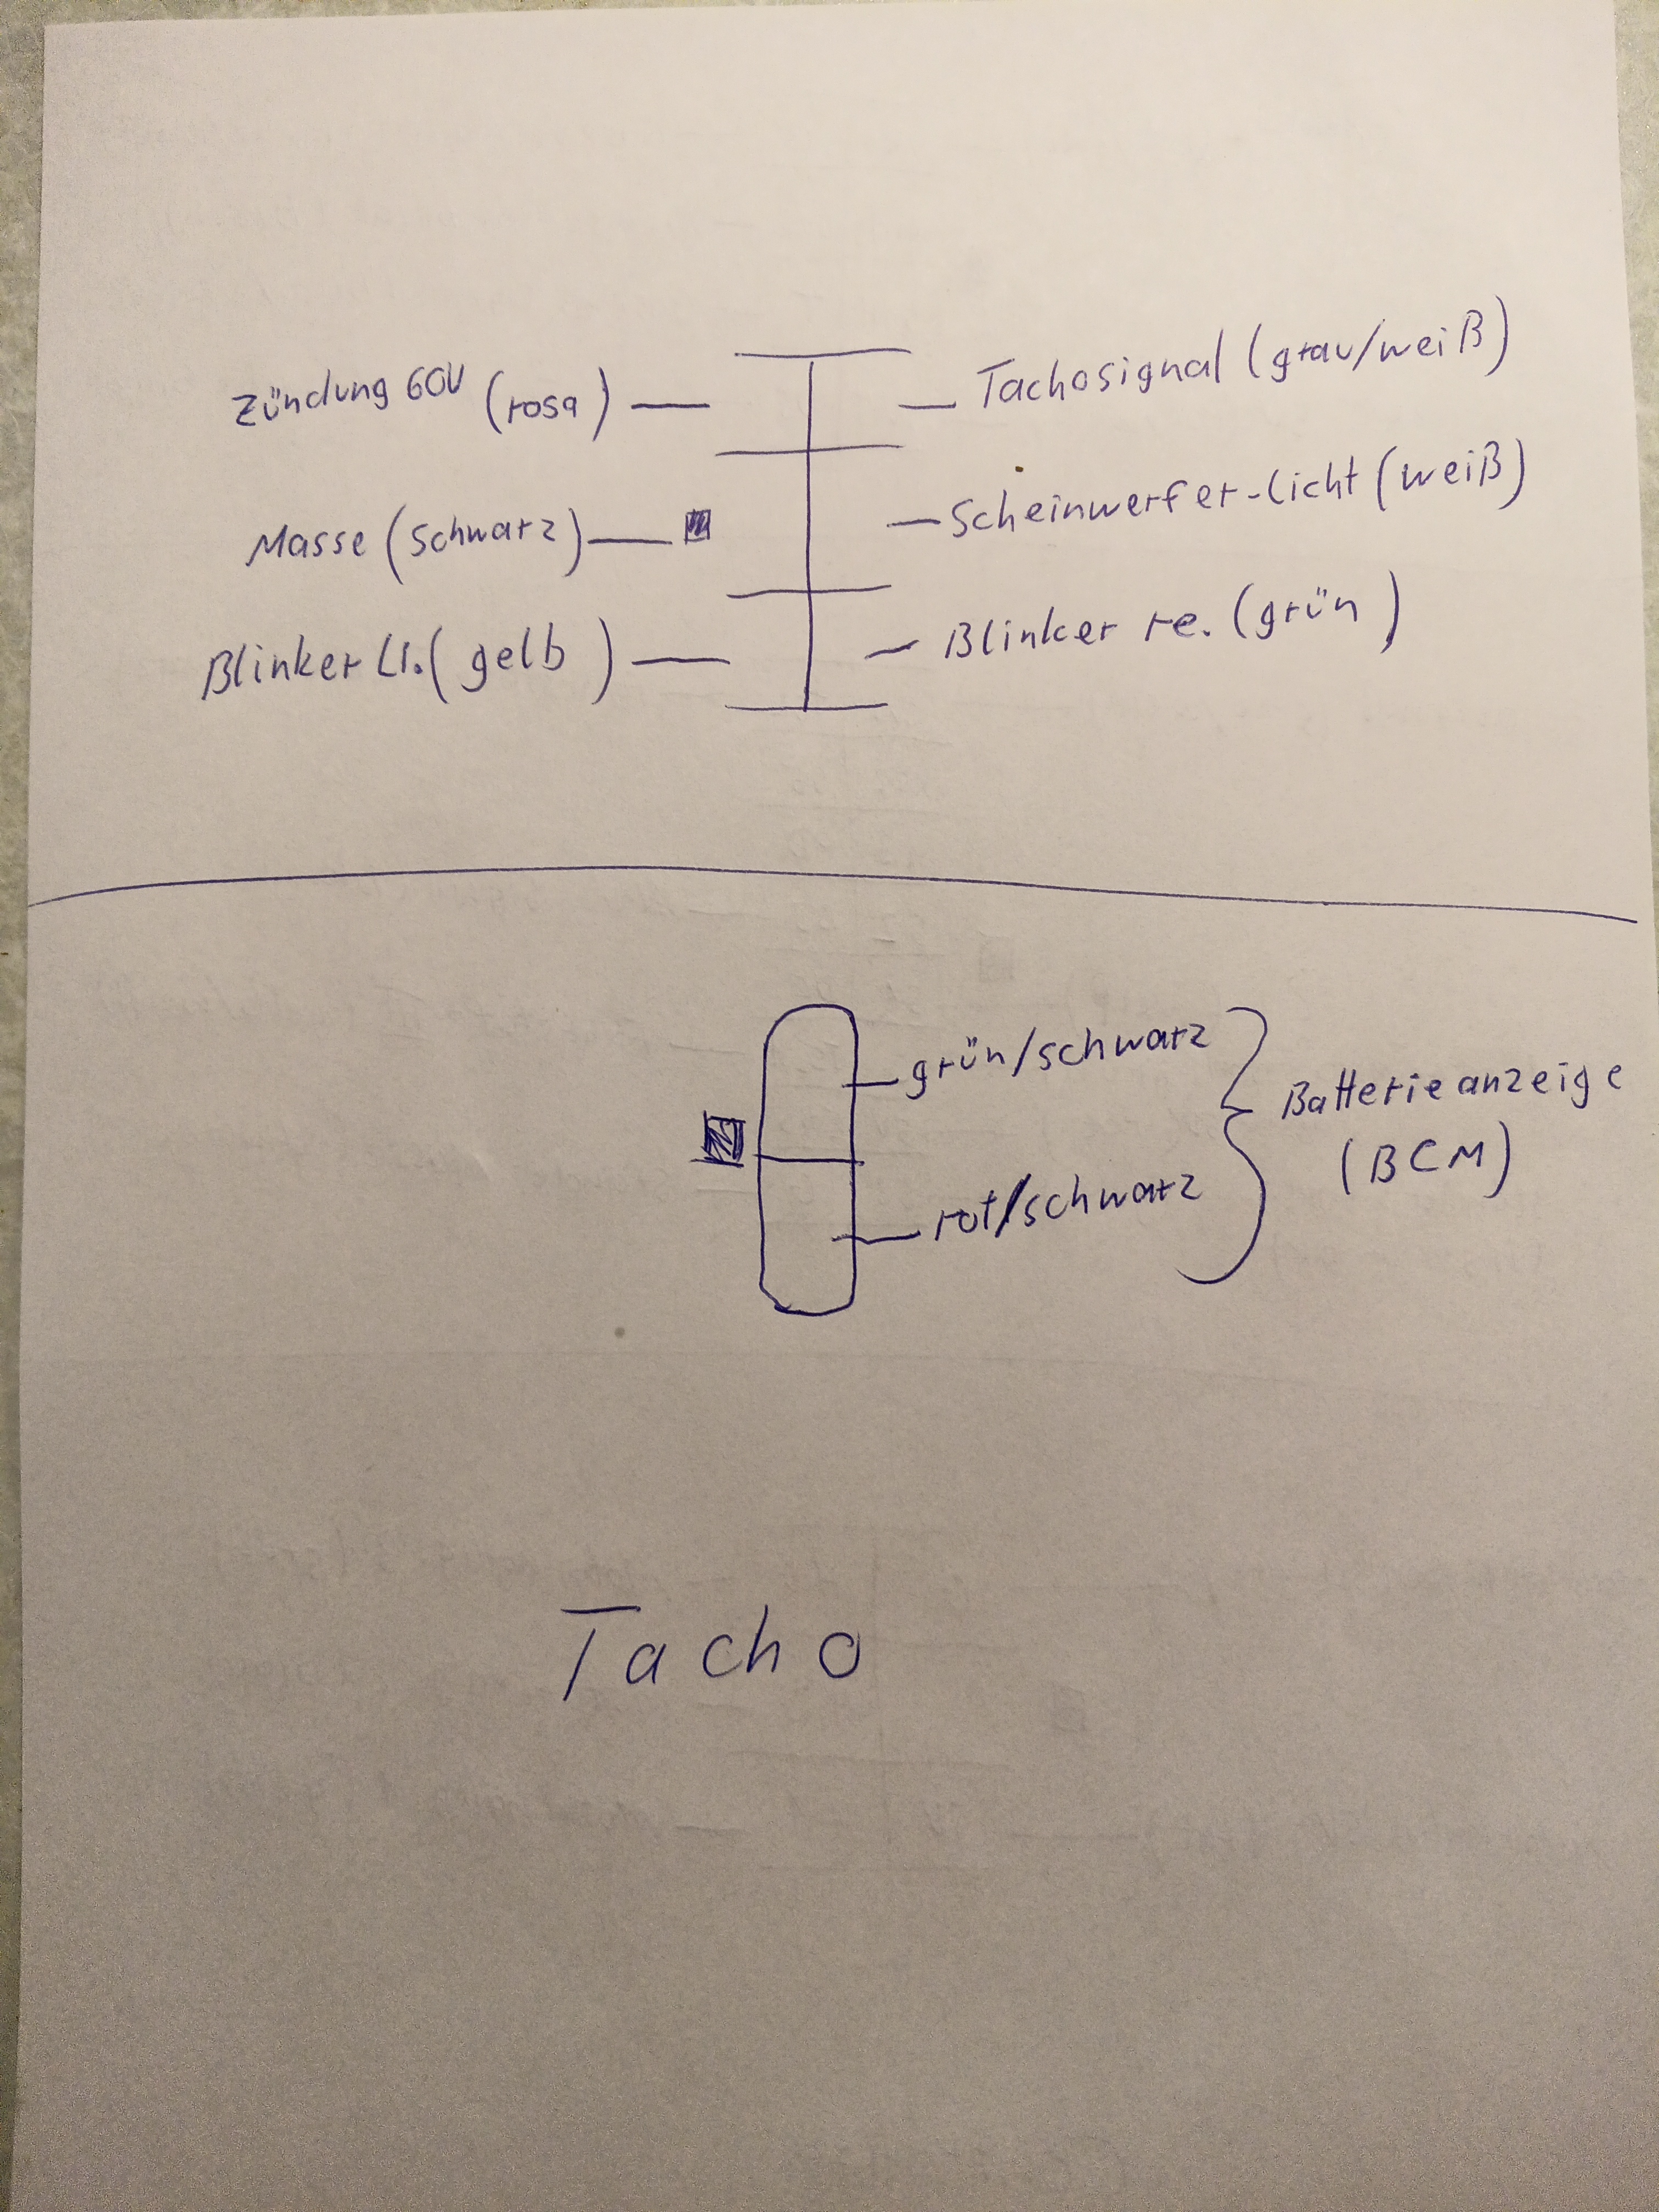 Zündung 60V (rosa)
Tachosignal (grau/weiß)
Masse (schwarz)
Scheinwerfer-Licht (weiß)
Blinker Li. (gelb)
Blinker re. (grün)
grün/schwarz
Batterieanzeige
(BCM)
rot/schwarz
Tacho